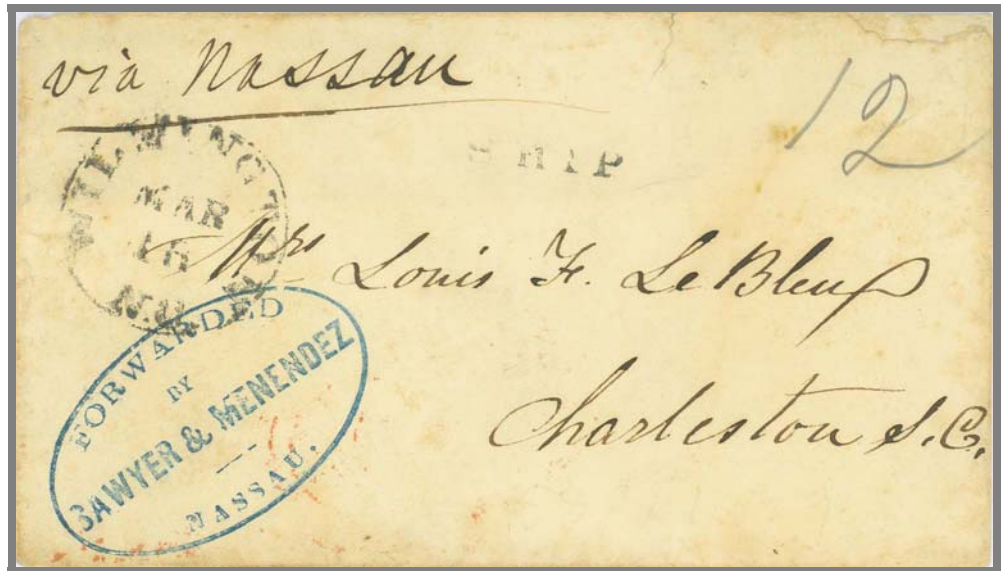 via Nassau
12
SHIP
WILMINGTON
MAR
16
N.C.
Mrs Louis F. LeBleux
Charleston S.C.
FORWARDED
BY
SAWYER & MENENDEZ
NASSAU.